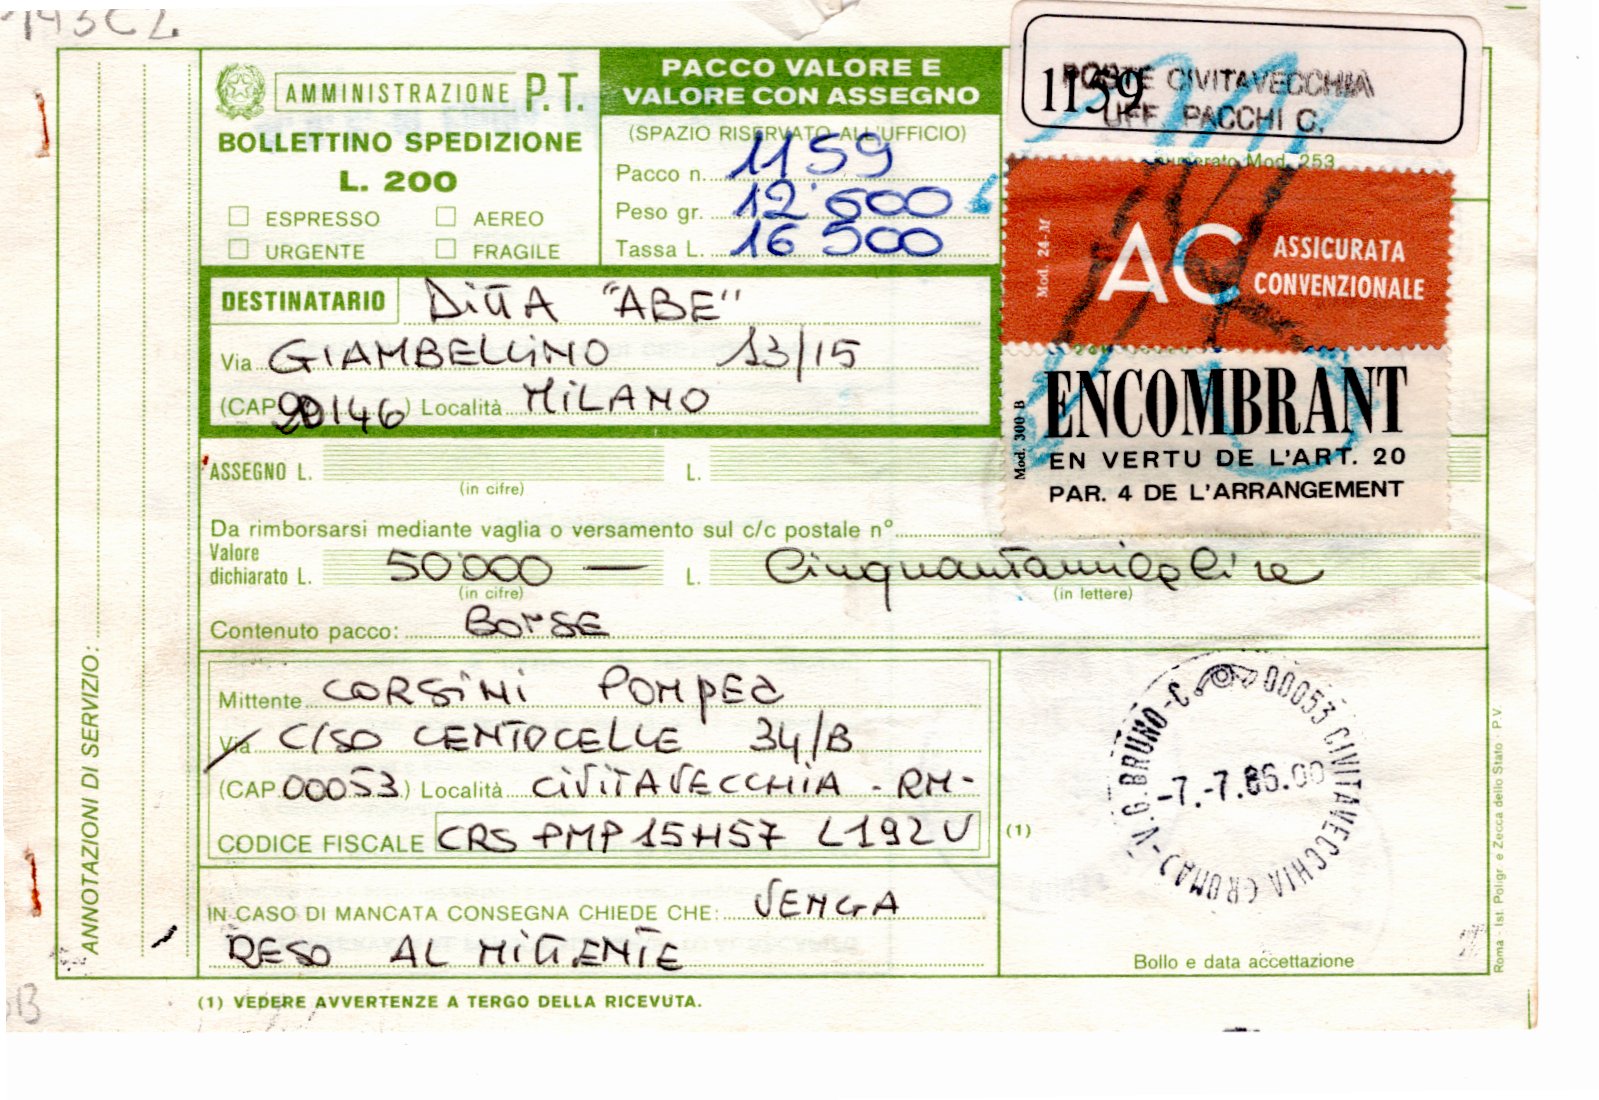 AMMINISTRAZIONE P.T.
BOLLETTINO SPEDIZIONE
L. 200
ESPRESSO AEREO
URGENTE FRAGILE
PACCO VALORE E
VALORE CON ASSEGNO
(SPAZIO RISERVATO ALL'UFFICIO)
Pacco n. 1159
Peso gr. 12.600
Tassa L. 16 500
1159
POSTE CIVITAVECCHIA
UFF. PACCHI C.
numerato Mod. 253
Mod. 24-M
AC ASSICURATA
CONVENZIONALE
Mod. 300-B
ENCOMBRANT
EN VERTU DE L'ART. 20
PAR. 4 DE L'ARRANGEMENT
DESTINATARIO DITTA "ABE"
Via GIAMBELLINO 13/15
(CAP 20146) Località MILANO
ASSEGNO L. L.
(in cifre)
Da rimborsarsi mediante vaglia o versamento sul c/c postale n°
Valore
dichiarato L. 50.000 — L. Cinquantamilalire
(in cifre) (in lettere)
Contenuto pacco: BORSE
Mittente CORSINI POMPEA
Via C/SO CENTOCELLE 34/B
(CAP 00053) Località CIVITAVECCHIA - RM-
CODICE FISCALE CRS PMP 15H57 L192U
(1)
IN CASO DI MANCATA CONSEGNA CHIEDE CHE: VENGA
RESO AL MITTENTE
00053 CIVITAVECCHIA (ROMA) - V. G. BRUNO - C
-7.-7.86.00
Bollo e data accettazione
ANNOTAZIONI DI SERVIZIO:
Roma - Ist. Poligr. e Zecca dello Stato - P.V.
(1) VEDERE AVVERTENZE A TERGO DELLA RICEVUTA.